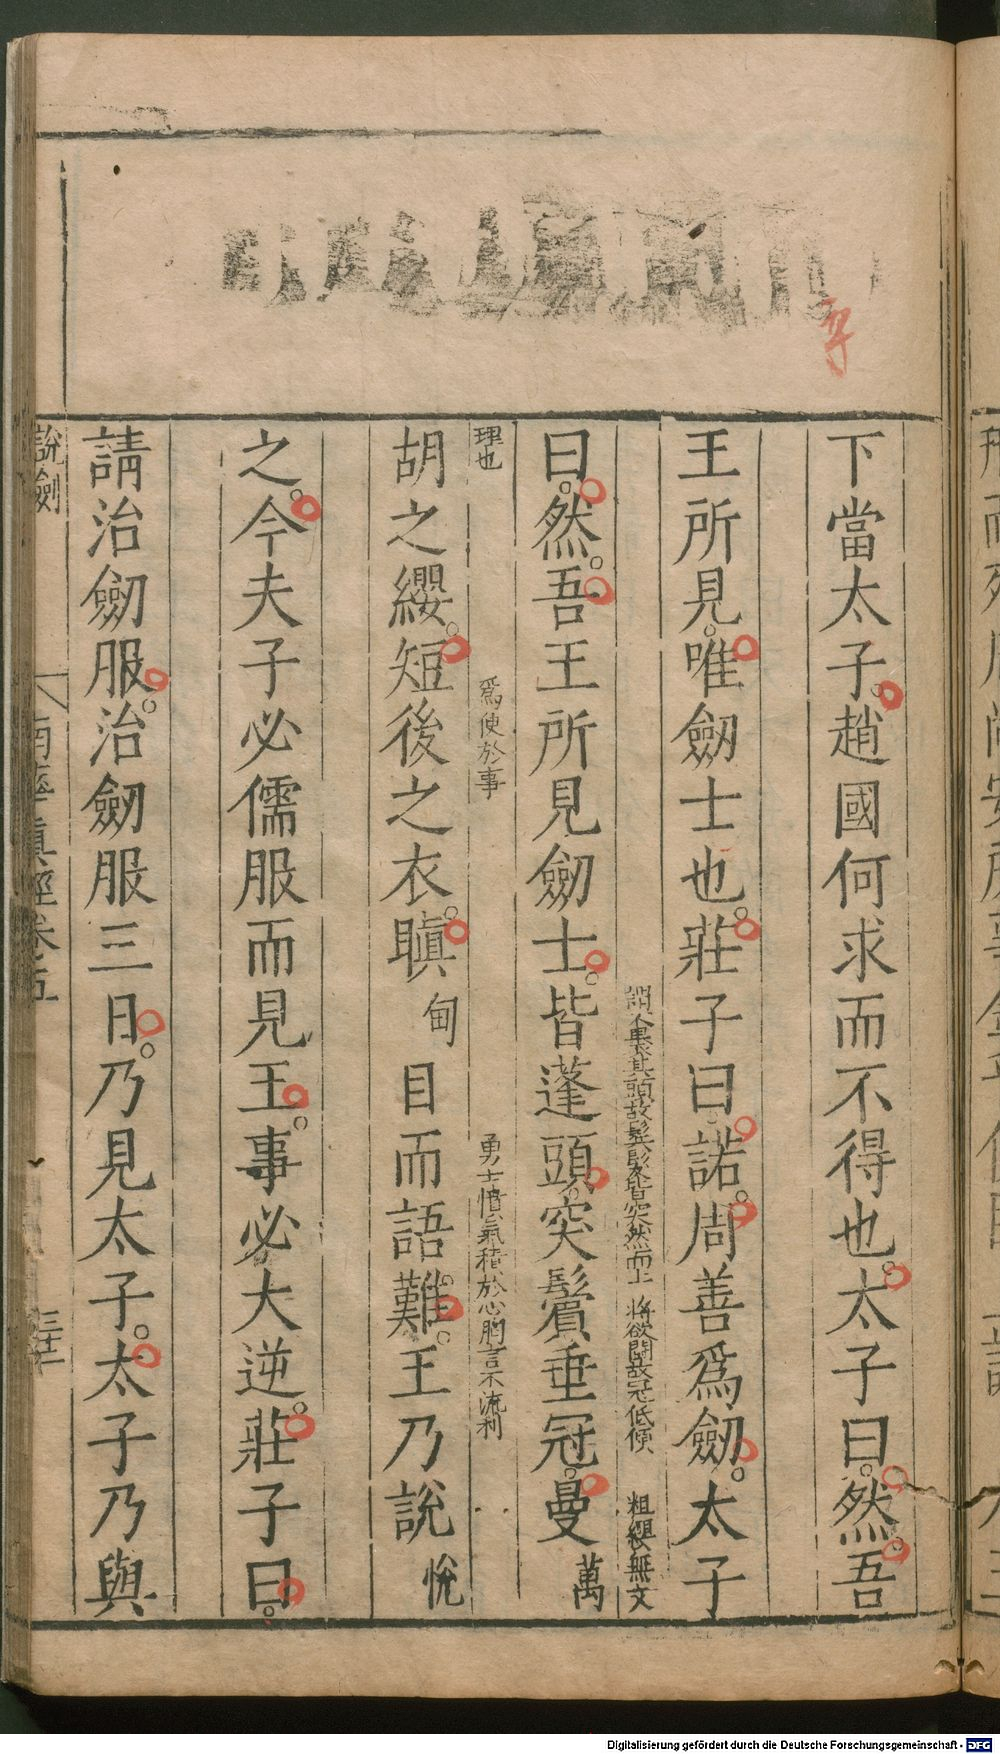 下當太子。趙國何求而不得也。太子曰。然。吾
王所見。唯劒士也。莊子曰。諾。周善爲劒。太子
謂不裹其頭故鬂髮皆突然而上 將欲鬪故冠低傾 粗纓無文
曰。然。吾王所見劒士。皆蓬頭。突鬢垂冠。曼萬
理也 爲便於事 勇士憤氣積於心胷言不流利
胡之纓。短後之衣。瞋甸目而語難。王乃說悅
之。今夫子必儒服而見王。事必大逆。莊子曰。
請治劒服。治劒服三日。乃見太子。太子乃與
說劍 南華真經卷五 三十二
字
Digitalisierung gefördert durch die Deutsche Forschungsgemeinschaft - DFG